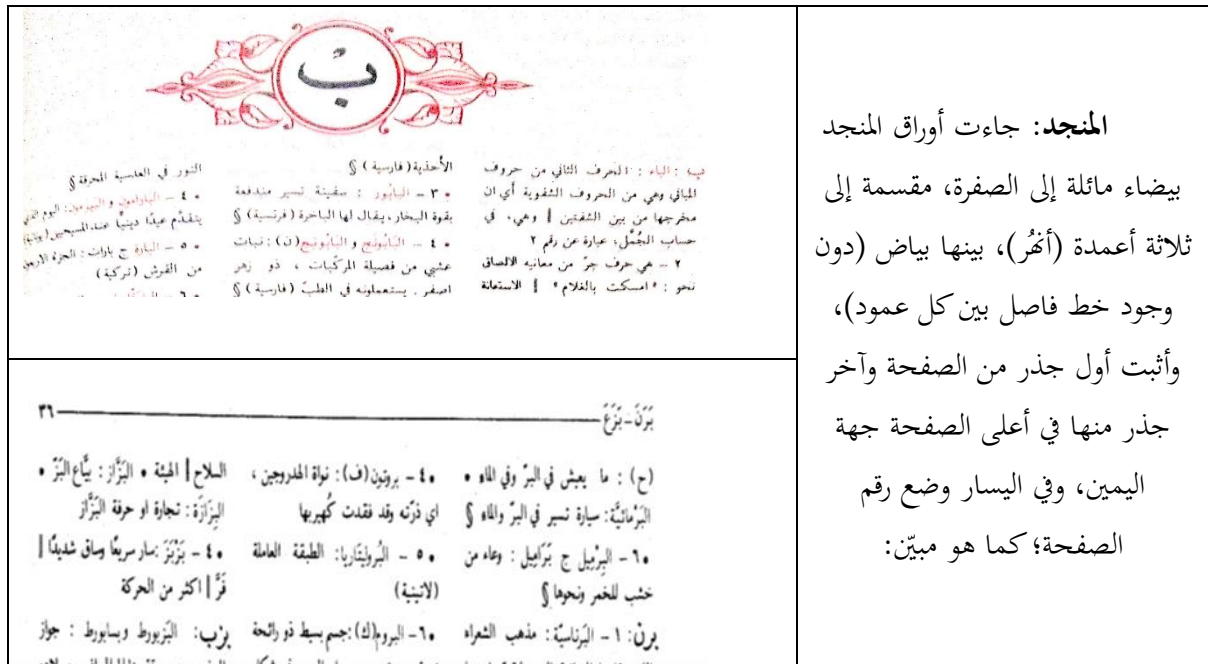 المنجد: جاءت أوراق المنجد
بيضاء مائلة إلى الصفرة، مقسمة إلى
ثلاثة أعمدة (أنهُر)، بينها بياض (دون
وجود خط فاصل بين كل عمود)،
وأثبت أول جذر من الصفحة وآخر
جذر منها في أعلى الصفحة جهة
اليمين، وفي اليسار وضع رقم
الصفحة؛ كما هو مبيّن:
ب
ب : الباء : الحرف الثاني من حروف
المباني وهي من الحروف الشفوية أي ان
مخرجها من بين الشفتين | وهي، في
حساب الجُمَّل، عبارة عن رقم ٢
٢ – هي حرف جرّ من معانيه الالصاق
نحو : «امسكت بالغلام» | الاستعانة
الأحذية (فارسية) §
• ٣ – البابُور : سفينة تسير مندفعة
بقوة البخار، يقال لها الباخرة (فرنسية) §
• ٤ – البَابُونَج و البَابُونج (ن) : نبات
عشبي من فصيلة المركّبات ، ذو زهر
اصفر . يستعملونه في الطبّ (فارسية) §
النور في العدسية المحرقة §
• ٤ – البارامون و البيرمون: اليوم الذي
يتقدّم عيدًا دينيًّا عند المسيحيين (يونانية)
• ٥ – البارة ج بارات : الجزء الاربعون
من القرش (تركية)
بَرَنَ – بَزَعَ
٣٦
(ح) : ما يعيش في البرّ وفي الماء •
البَرْمائيَّة: سيارة تسير في البرّ والماء §
• ٦ – البِرْمِيل ج بَرَامِيل : وعاء من
خشب للخمر ونحوها §
برن: ١ – البَرناسيّة : مذهب الشعراء
• ٤ – بروتون (ف) : نواة الهدروجين ،
اي ذرّته وقد فقدت كُهيربها
• ٥ – البُروليتَاريا: الطبقة العاملة
(لاتينية)
• ٦ – البروم (ك) : جسم بسيط ذو رائحة
السلاح | الهيئة • البَزَّاز : بيَّاع البَزّ •
البِزَازَة : تجارة او حرفة البَزَّاز
• ٤ – بَزْبَزَ : سار سريعًا وساق شديدًا |
فَرَّ | اكثر من الحركة
بزب: البَزبورط وبسابورط : جواز